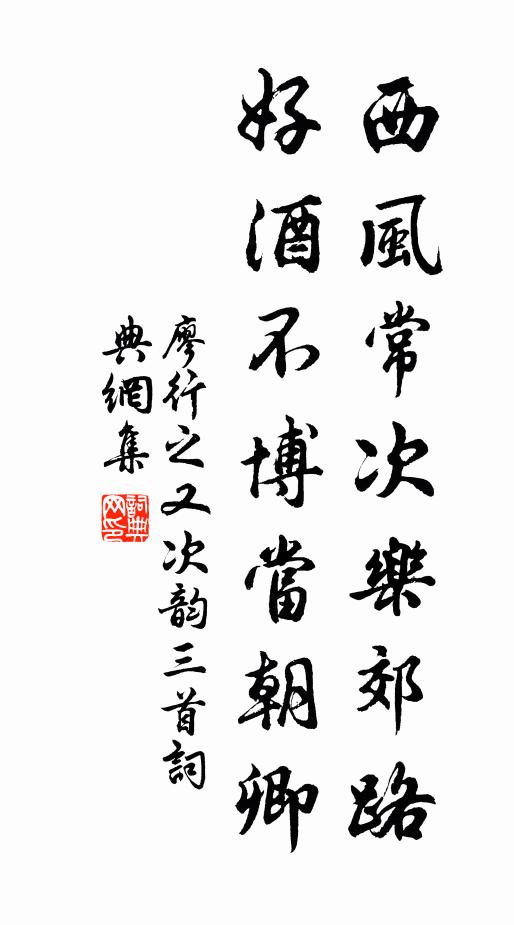 西風常次樂郊路
好酒不博當朝卿
廖行之又次韵三首詞
典網集
詞典网印